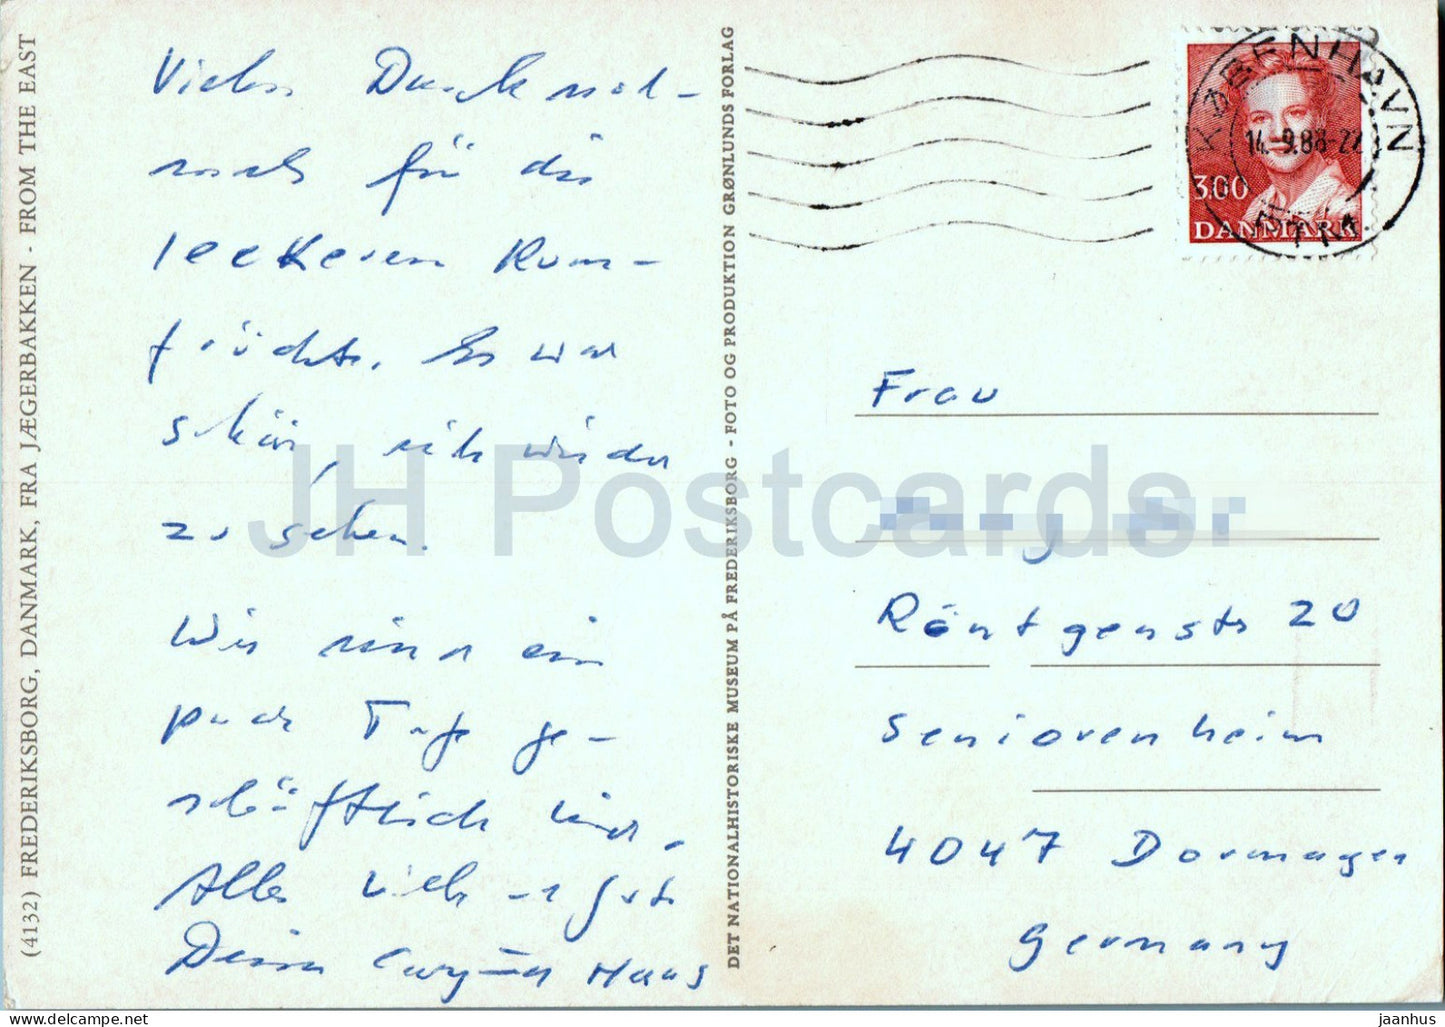 (4132) FREDERIKSBORG, DANMARK, FRA JÆGERBAKKEN - FROM THE EAST
Vielen Dank noch-
mals für die
leckeren Rum-
früchte. Es war
schön, dich wieder
zu sehen.
Wir sind ein
paar Tage ge-
schäftlich hier.
Alles Liebe u gut
Deine und Haas
DET NATIONALHISTORISKE MUSEUM PÅ FREDERIKSBORG - FOTO OG PRODUKTION GRØNLUNDS FORLAG
KØBENHAVN
14. 9.88-22
3.00
DANMARK
Frau
Röntgenstr 20
Seniorenheim
4047 Dormagen
Germany
JH Postcards
jaanhus www.delcampe.net